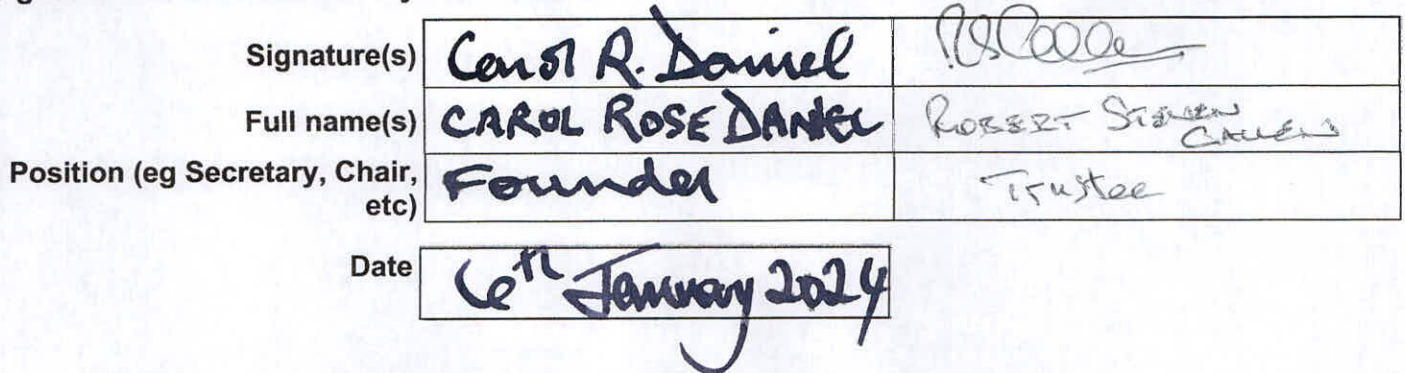 Signature(s) Carol R. Daniel
Full name(s) CAROL ROSE DANIEL ROBERT STEVEN
Position (eg Secretary, Chair, etc) Founder Trustee
Date 6th January 2024